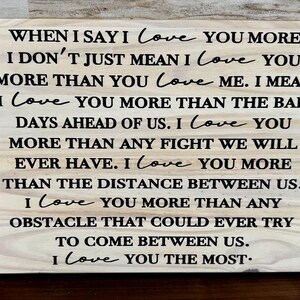 WHEN I SAY I love YOU MORE
I DON'T JUST MEAN I love YOU
MORE THAN YOU love ME. I MEA
I love YOU MORE THAN THE BAD
DAYS AHEAD OF US. I love YOU
MORE THAN ANY FIGHT WE WILL
EVER HAVE. I love YOU MORE
THAN THE DISTANCE BETWEEN US.
I love YOU MORE THAN ANY
OBSTACLE THAT COULD EVER TRY
TO COME BETWEEN US.
I love YOU THE MOST.